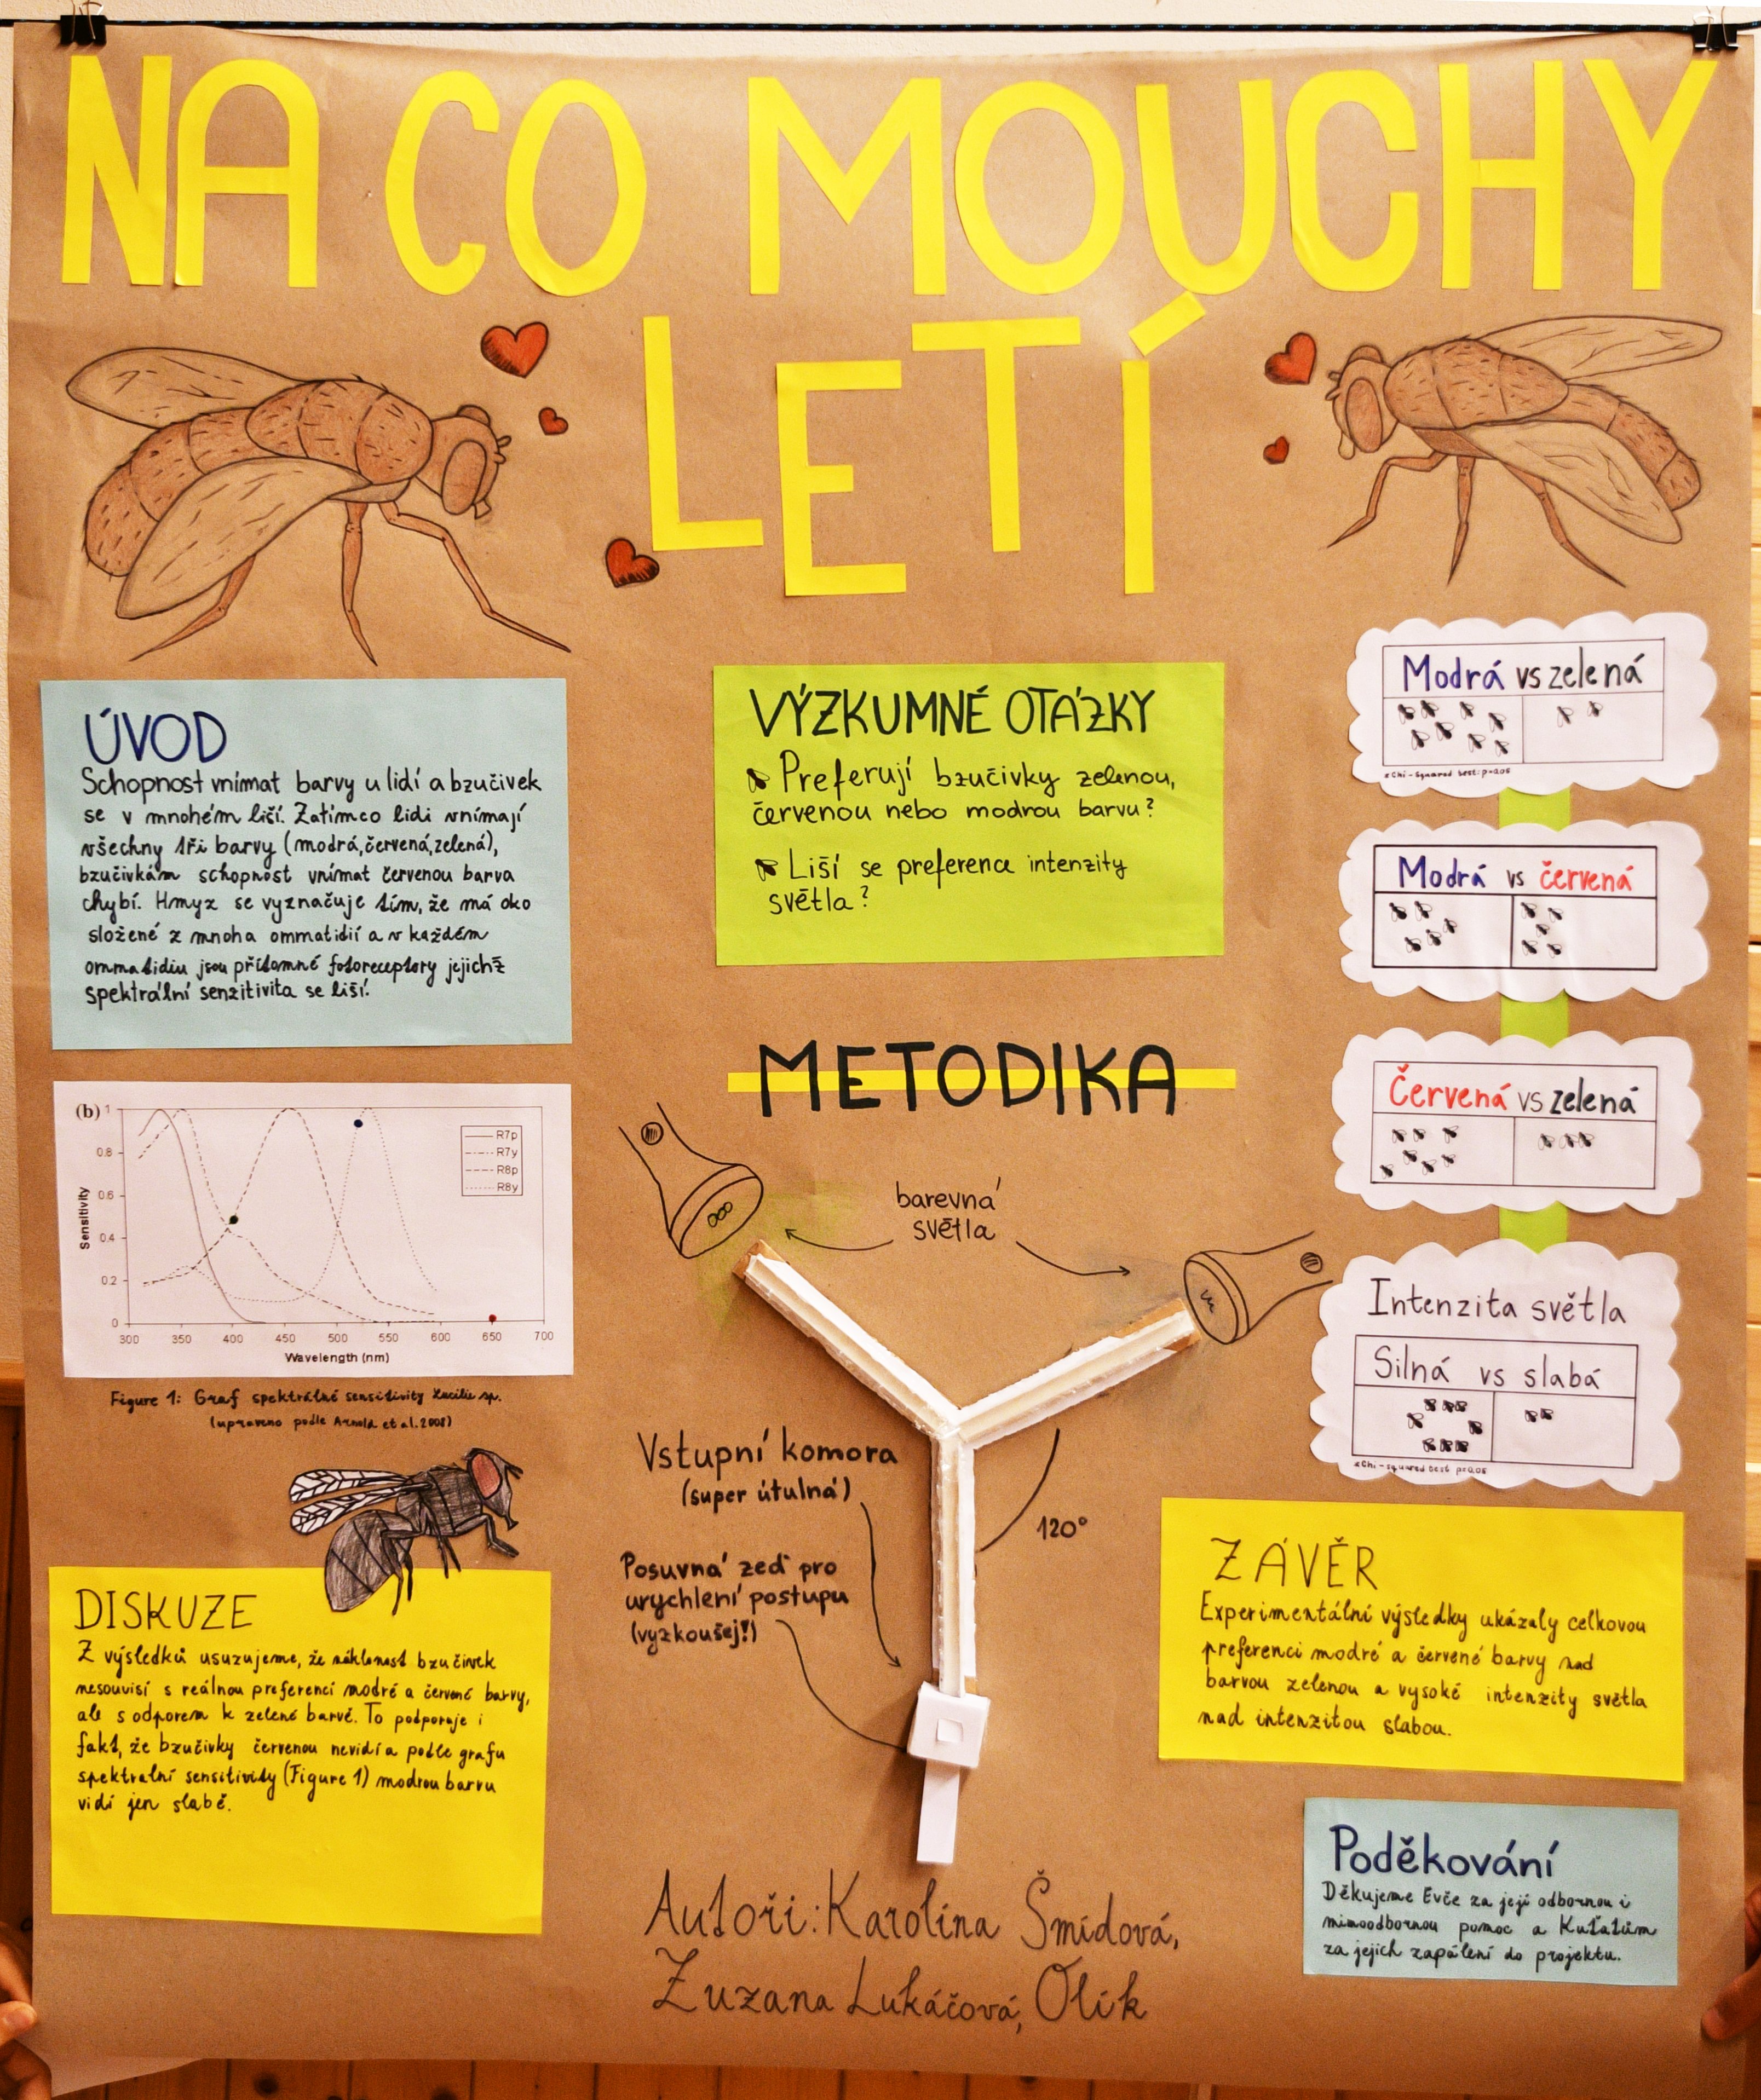 NA CO MOUCHY
LETÍ
ÚVOD
Schopnost vnímat barvy u lidí a bzučivek
se v mnohém liší. Zatímco lidi vnímají
všechny tři barvy (modrá, červená, zelená),
bzučivkám schopnost vnímat červenou barva
chybí. Hmyz se vyznačuje tím, že má oko
složené z mnoha ommatidií a v každém
ommatidiu jsou přítomné fotoreceptory jejichž
spektrální senzitivita se liší.
(b)
Sensitivity
1
0.8
0.6
0.4
0.2
0
300 350 400 450 500 550 600 650 700
Wavelength (nm)
R7p
R7y
R8p
R8y
Figure 1: Graf spektrální sensitivity Lucilia sp.
(upraveno podle Arnold et al. 2008)
DISKUZE
Z výsledků usuzujeme, že náklonost bzučivek
nesouvisí s reálnou preferencí modré a červené barvy,
ale s odporem k zelené barvě. To podporuje i
fakt, že bzučivky červenou nevidí a podle grafu
spektralní sensitivity (Figure 1) modrou barvu
vidí jen slabě.
VÝZKUMNÉ OTÁZKY
Preferují bzučivky zelenou,
červenou nebo modrou barvu?
Liší se preference intenzity
světla?
METODIKA
barevná
světla
Vstupní komora
(super útulná)
120°
Posuvná zeď pro
urychlení postupu
(vyzkoušej!)
Autoři: Karolína Šmídová,
Zuzana Lukáčová, Olík
Modrá vs zelená
*Chi-squared test: p=0.05
Modrá vs červená
Červená vs zelená
Intenzita světla
Silná vs slabá
*Chi-squared test p=0.05
ZÁVĚR
Experimentální výsledky ukázaly celkovou
preferenci modré a červené barvy nad
barvou zelenou a vysoké intenzity světla
nad intenzitou slabou.
Poděkování
Děkujeme Evče za její odbornou i
mimoodbornou pomoc a Kuťatům
za jejich zapálení do projektu.